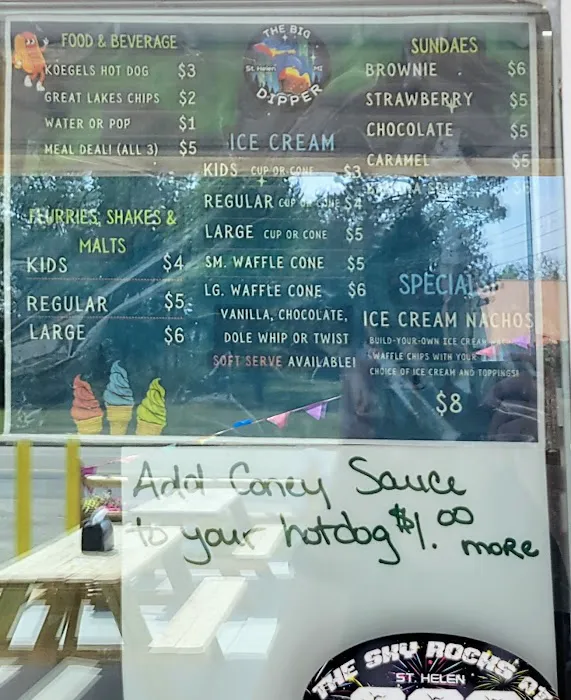 FOOD & BEVERAGE
KOEGELS HOT DOG $3
GREAT LAKES CHIPS $2
WATER OR POP $1
MEAL DEAL! (ALL 3) $5
FLURRIES, SHAKES &
MALTS
KIDS $4
REGULAR $5
LARGE $6
THE BIG
St. Helen MI
DIPPER
ICE CREAM
KIDS CUP OR CONE $3
REGULAR CUP OR CONE $4
LARGE CUP OR CONE $5
SM. WAFFLE CONE $5
LG. WAFFLE CONE $6
VANILLA, CHOCOLATE,
DOLE WHIP OR TWIST
SOFT SERVE AVAILABLE!
SUNDAES
BROWNIE $6
STRAWBERRY $5
CHOCOLATE $5
CARAMEL $5
BANANA SPLIT $6
SPECIALS
ICE CREAM NACHOS
BUILD-YOUR-OWN ICE CREAM
WAFFLE CHIPS WITH YOUR
CHOICE OF ICE CREAM AND TOPPINGS!
$8
Add Coney Sauce
to your hotdog $1.00 more
THE SKY ROCKS
ST. HELEN